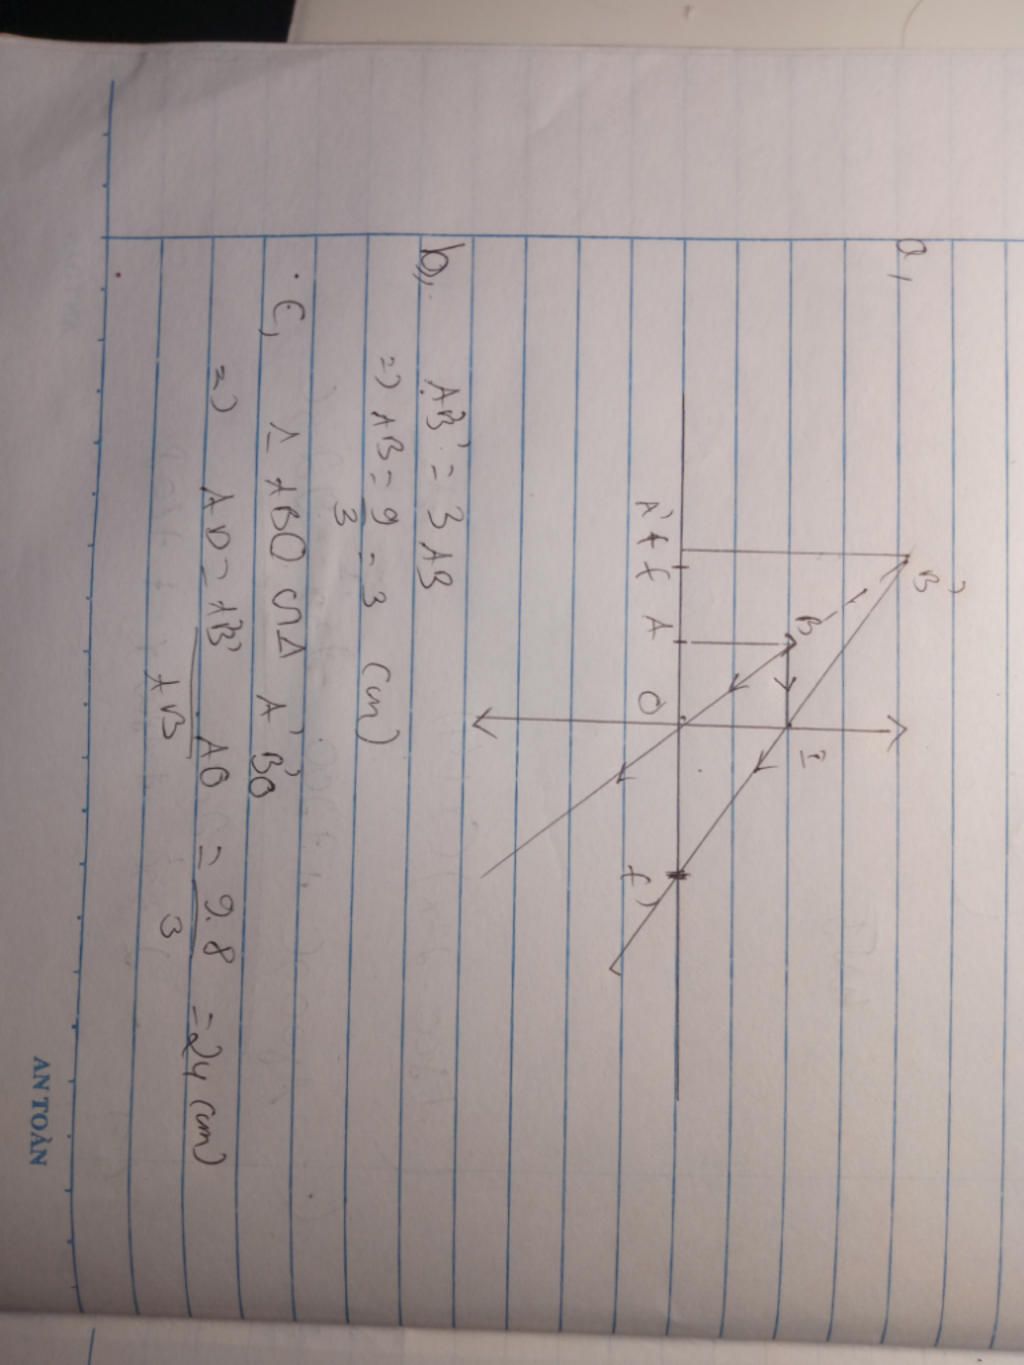 a,
B'
B
I
A' F A O F'
b,, A'B' = 3 AB
=) AB = 9/3 = 3 (cm)
c, Δ ABO ∽ Δ A'B'O
=) A'O = A'B'/AB AO = 9.8/3 = 24 (cm)
AN TOÀN